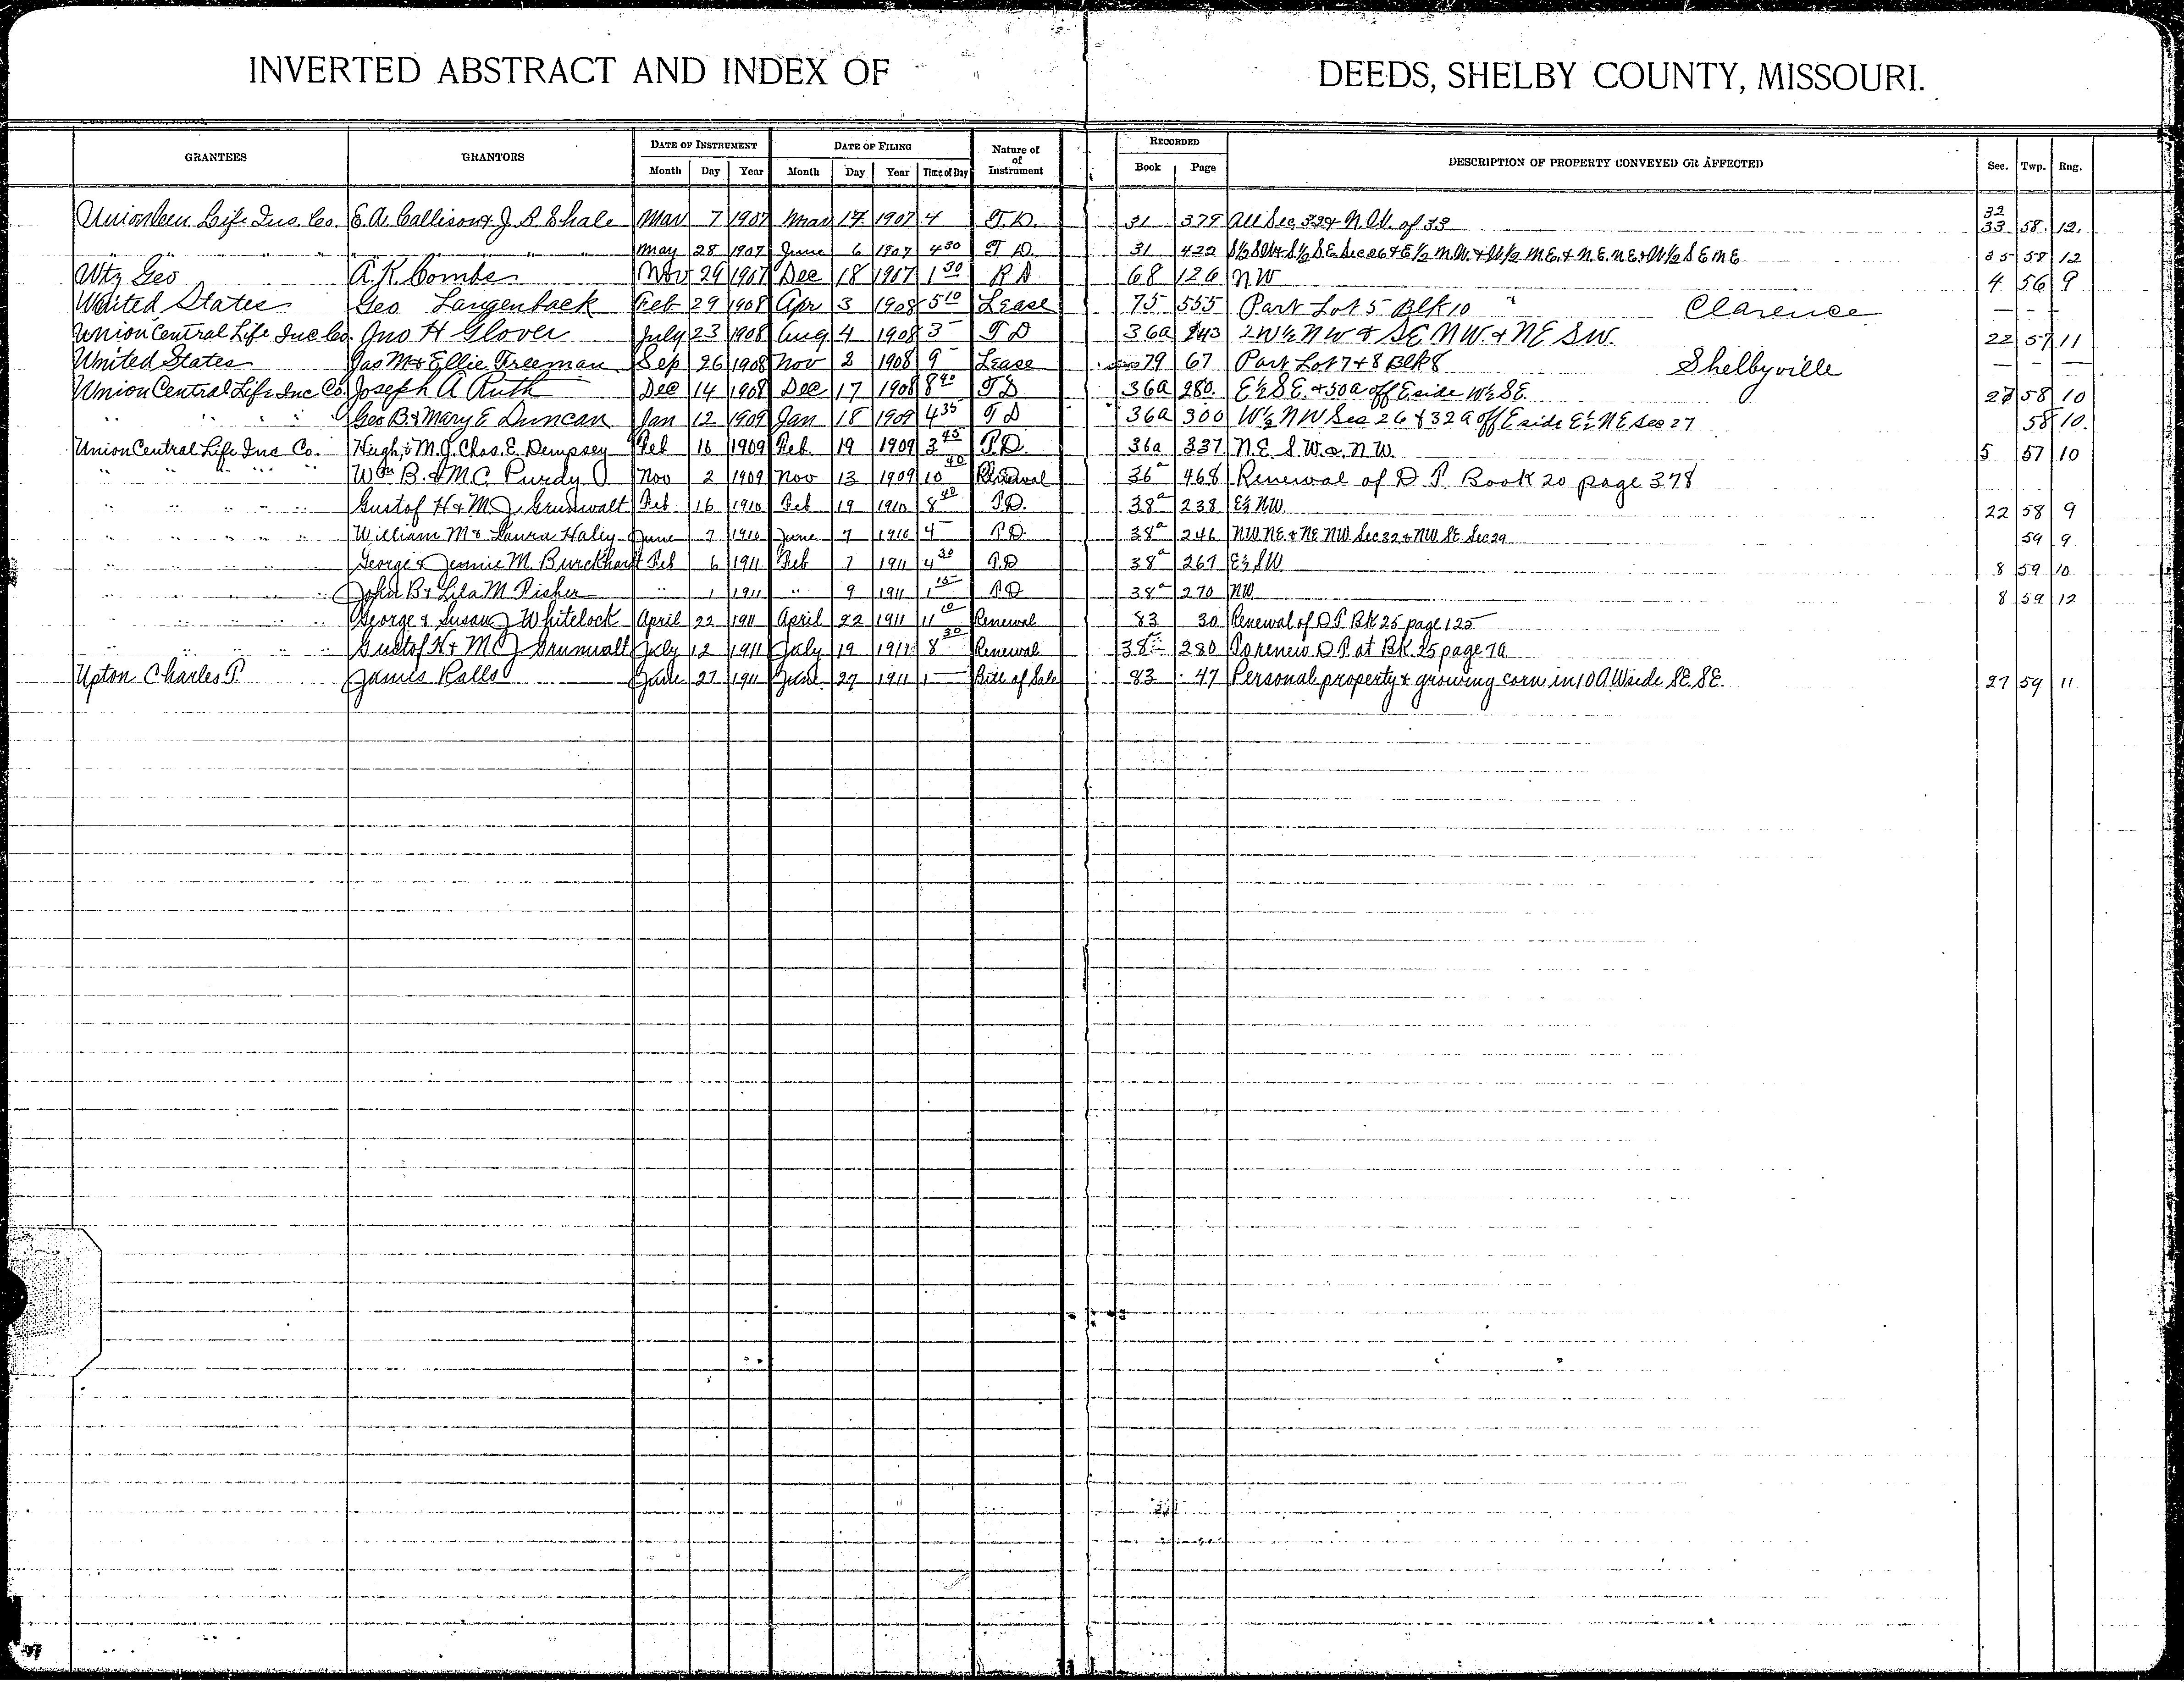 INVERTED ABSTRACT AND INDEX OF DEEDS, SHELBY COUNTY, MISSOURI.
GRANTEES GRANTORS DATE OF INSTRUMENT DATE OF FILING Nature of of Instrument RECORDED DESCRIPTION OF PROPERTY CONVEYED OR AFFECTED Sec. Twp. Rng.
Month Day Year Month Day Year Time of Day Book Page
Union Cen Life Ins. Co. E. A. Callison & J. B. Shale Mar 7 1907 Mar 17 1907 4 T.D. 31 379 All Sec 32 & N.W. of 33 32 33 58 12
" " " " " May 28 1907 June 6 1907 4 30 T D. 31 422 S½ SW & S½ SE Sec 26 & E½ N.W. & W½ N.E. & N.E. N.E. & W½ S E N E 35 58 12
Utz Geo A. K. Combs Nov 29 1907 Dec 18 1907 1 30 R D 68 126 NW 4 56 9
United States Geo Langenback Feb 29 1908 Apr 3 1908 5 10 Lease 75 555 Part Lot 5 Blk 10 " Clarence — - -
Union Central Life Inc Co. Jno H Glover July 23 1908 Aug 4 1908 3 - T D 36a 143 W½ NW & SE NW. & NE SW. 22 57 11
United States Jas M & Ellie Freeman Sep 26 1908 Nov 2 1908 9 - Lease 79 67 Part Lot 7 & 8 Blk 8 Shelbyville — - —
Union Central Life Inc Co. Joseph A Ruth Dec 14 1908 Dec 17 1908 8 40 T D 36a 280. E½ SE. & 50a off E side W½ SE. 27 58 10
" " " " Geo B. & Mary E Duncan Jan 12 1909 Jan 18 1909 4 35 T D 36a 300 W½ NW Sec 26 & 32a off E side E½ NE Sec 27 58 10.
Union Central Life Inc Co. Hugh, & M. J. Chas. E. Dempsey Feb 16 1909 Feb. 19 1909 3 45 T.D. 36a 337 N.E. S.W. & N.W. 5 57 10
" " " " Wm B. & M C. Purdy Nov 2 1909 Nov 13 1909 10 40 Renewal 36a 468 Renewal of D. T. Book 20 page 378
" " " " Gustof H & M J. Grunwalt Feb 16 1910 Feb 19 1910 8 40 T.D. 38a 238 E½ NW 22 58 9
" " " " William M & Laura Haley June 7 1910 June 7 1910 4 - T.D. 38a 246 NW. NE & NE NW Sec 32 & NW SE Sec 29 59 9
" " " " George & Jennie M. Burckhart Feb 6 1911 Feb 7 1911 4 30 T.D 38a 267 E½ SW 8 59 10
" " " " John B & Lila M Fisher " 1 1911 " 9 1911 1 15 T.D 38a 270 NW 8 59 12
" " " " George & Susan J Whitelock April 22 1911 April 22 1911 11 10 Renewal 83 30 Renewal of D T BK 25 page 125
" " " " Gustof H & M J Grunwalt July 12 1911 July 19 1911 8 30 Renewal 38a 280 To renew D. T. at BK 25 page 70
Upton Charles T. James Ralls June 27 1911 June 27 1911 1 — Bill of Sale 83 47 Personal property & growing corn in 10 A W side SE SE. 27 59 11